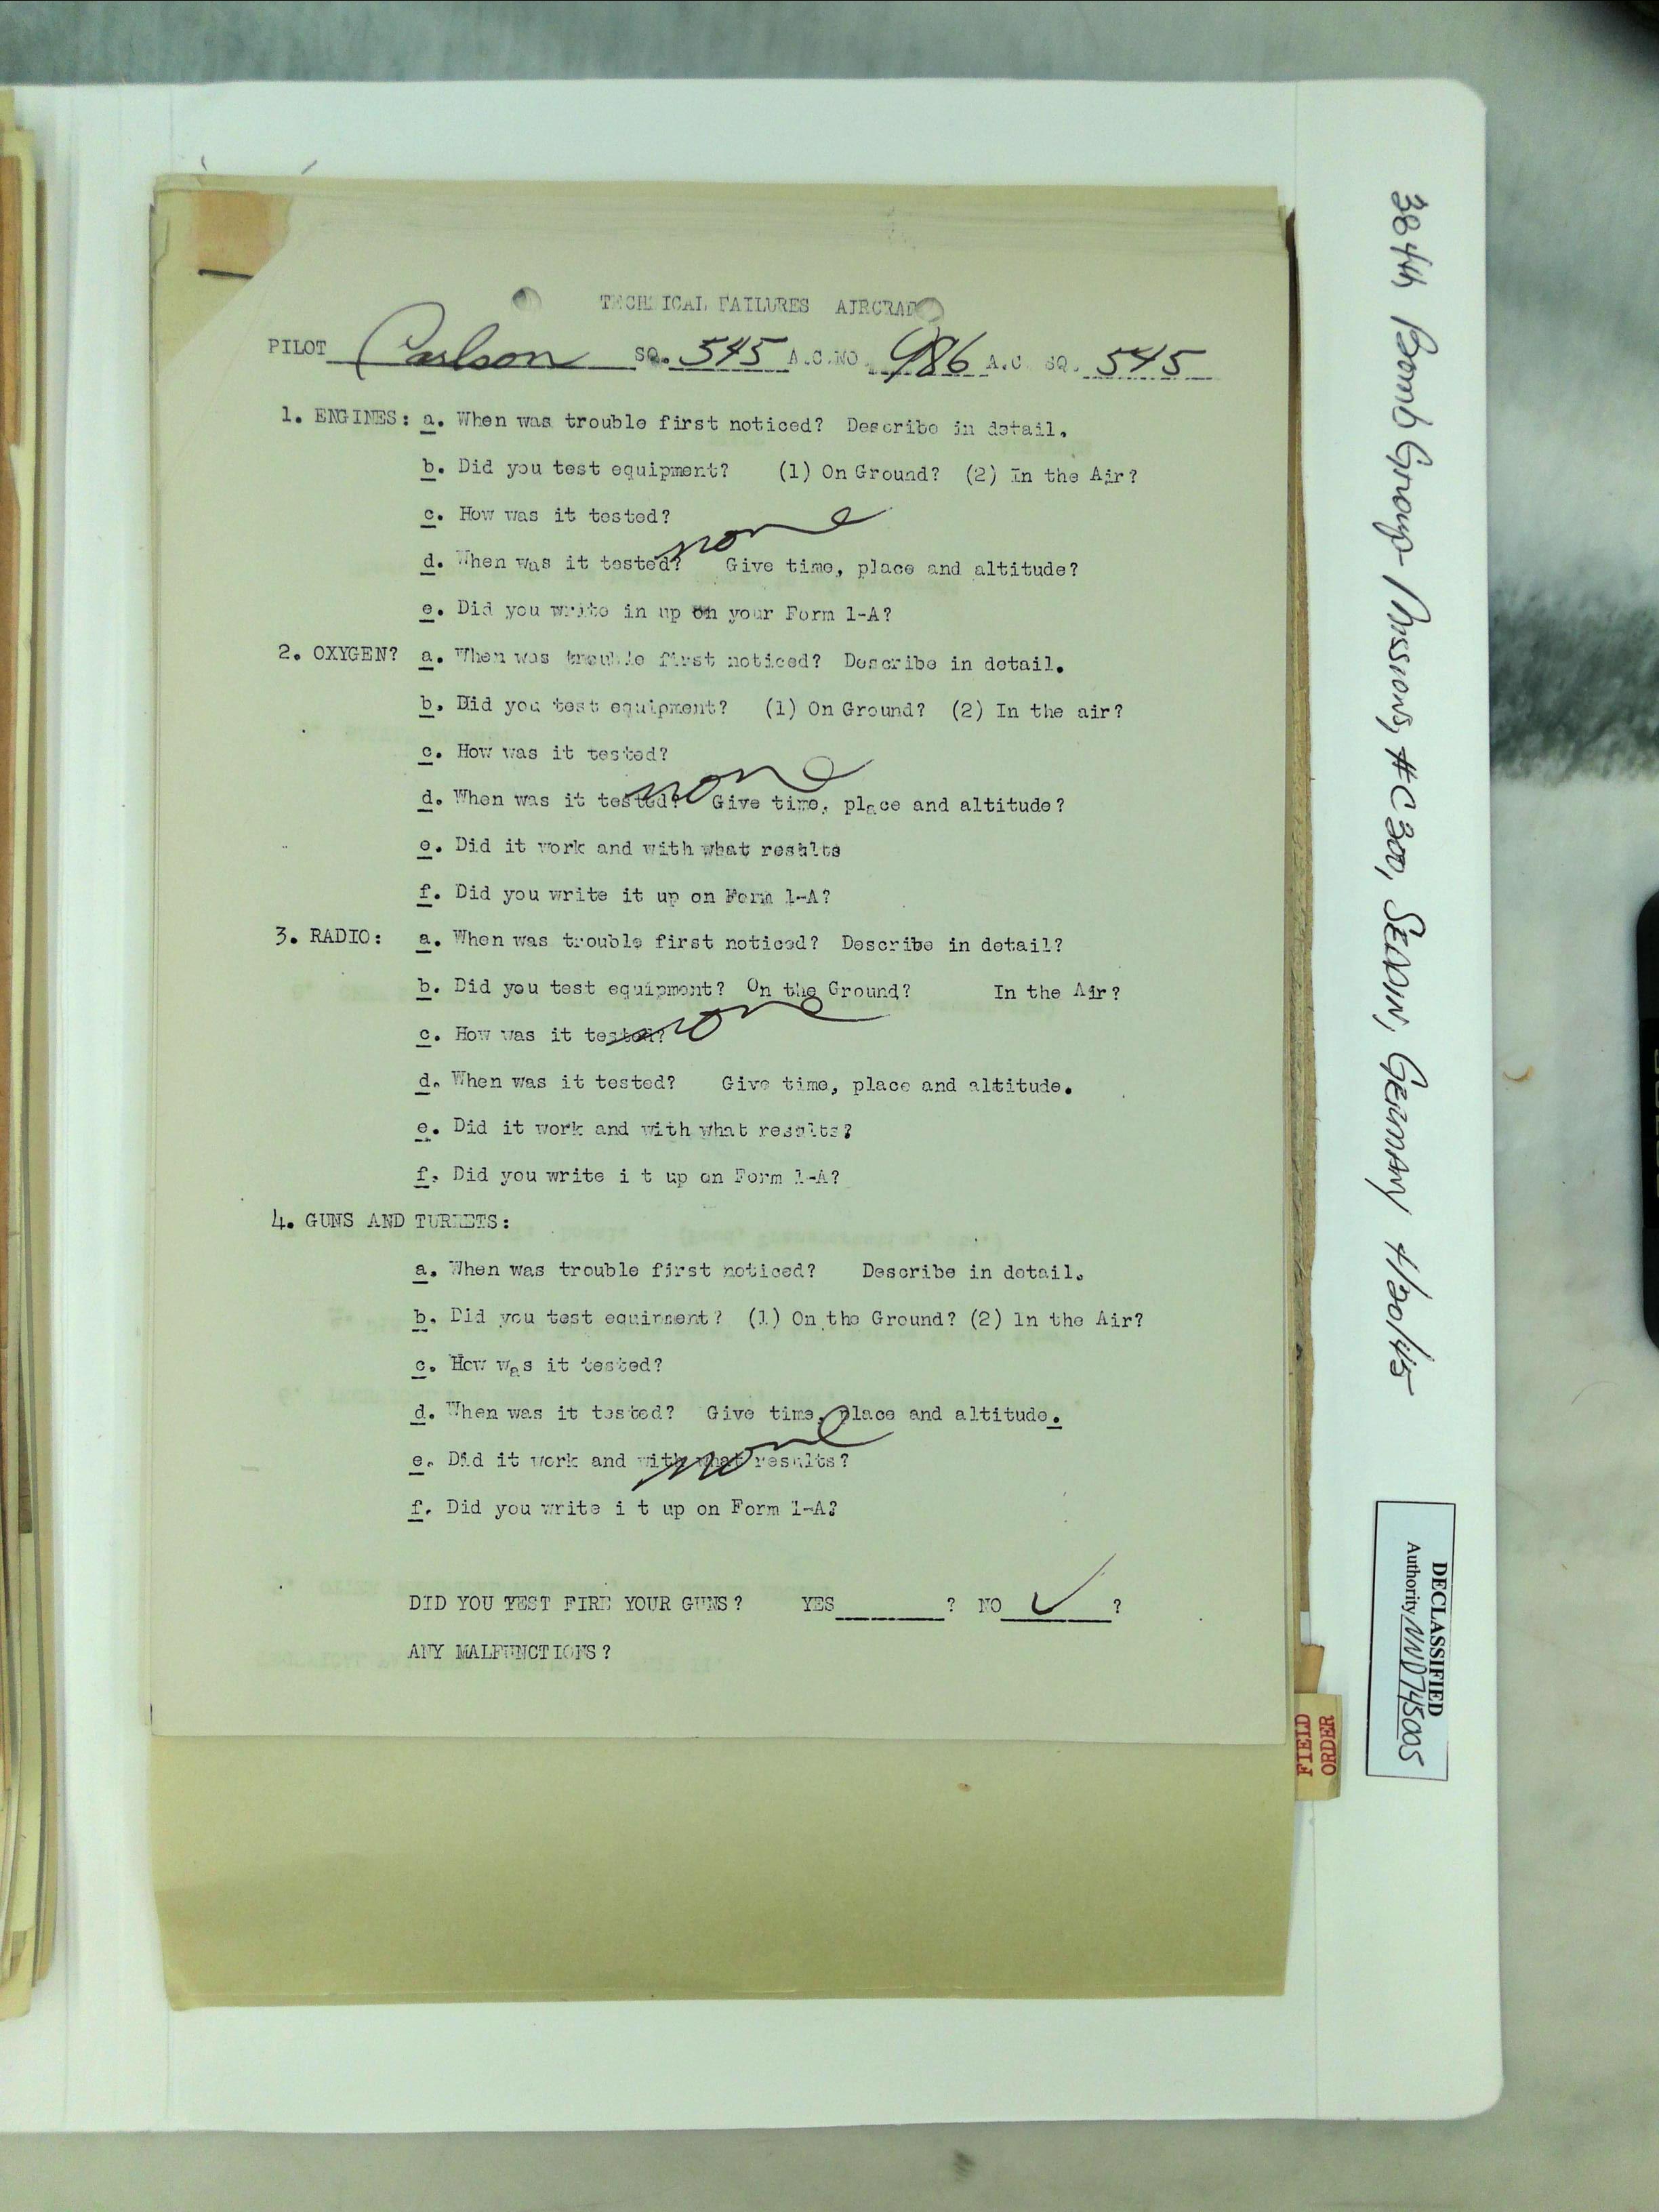 TECHNICAL FAILURES AIRCRAF
PILOT Carlson SQ. 545 A.C.NO. 986 A.C. SQ. 545
1. ENGINES: a. When was trouble first noticed? Describe in detail.
b. Did you test equipment? (1) On Ground? (2) In the Air?
c. How was it tested?
none
d. When was it tested? Give time, place and altitude?
e. Did you write in up on your Form 1-A?
2. OXYGEN? a. When was trouble first noticed? Describe in detail.
b. Did you test equipment? (1) On Ground? (2) In the air?
c. How was it tested?
none
d. When was it tested? Give time, place and altitude?
e. Did it work and with what results
f. Did you write it up on Form 1-A?
3. RADIO: a. When was trouble first noticed? Describe in detail?
b. Did you test equipment? On the Ground? In the Air?
none
c. How was it tested?
d. When was it tested? Give time, place and altitude.
e. Did it work and with what results?
f. Did you write i t up on Form 1-A?
4. GUNS AND TURRETS:
a. When was trouble first noticed? Describe in detail.
b. Did you test equipment? (1) On the Ground? (2) In the Air?
c. How was it tested?
d. When was it tested? Give time, place and altitude.
none
e. Did it work and with what results?
f. Did you write i t up on Form 1-A?
DID YOU TEST FIRE YOUR GUNS? YES ? NO ✓ ?
ANY MALFUNCTIONS?
FIELD
ORDER
384th Bomb Group- Missions, #C300, Germany 4/20/45
DECLASSIFIED
Authority NND745005